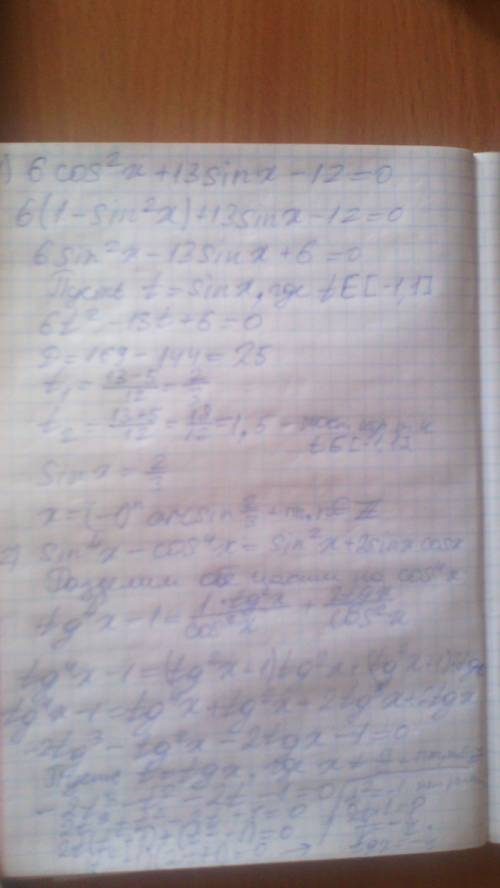 ) 6 cos²x + 13 sin x − 12 = 0
6(1 − sin²x) + 13 sin x − 12 = 0
6 sin²x − 13 sin x + 6 = 0
Пусть t = sin x, где t ∈ [−1,1]
6t² − 13t + 6 = 0
D = 169 − 144 = 25
t₁ = (13−5)/12 = 2/3
t₂ = (13+5)/12 = 18/12 = 1,5 −
t ∈ [−1,1]
sin x = 2/3
x = (−1)ⁿ arcsin 2/3 + πn, n ∈ Z
2) sin⁴x − cos⁴x = sin²x + 2 sin x cos x
Разделим обе части на cos⁴x
tg⁴x − 1 = 1·tg²x/cos²x + 2tgx/cos²x
tg⁴x − 1 = (tg²x + 1) tg²x + (tg²x + 1) 2tgx
tg⁴x − 1 = tg⁴x + tg²x + 2tg³x + 2tgx
−2tg³ − tg²x − 2tgx − 1 = 0
Пусть t = tgx, где x ≠
−2t³ − t² − 2t − 1 = 0